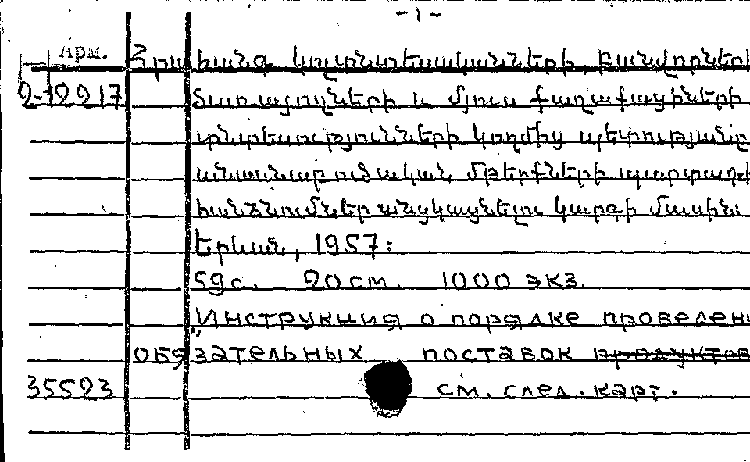 -1-
Арм. Հրահանգ կոլտնտեսականների, բանվորների
2-12217 ծառայողների և մյուս քաղաքացիների
տնտեսությունների կողմից պետությանը
անասնաբուծական մթերքների պարտադիր
հանձնումներ անցկացնելու կարգի մասին.
Երևան, 1957:
59с. 20см. 1000 экз.
"Инструкция о порядке проведен
обязательных поставок продуктов
35523 см. след. карт.